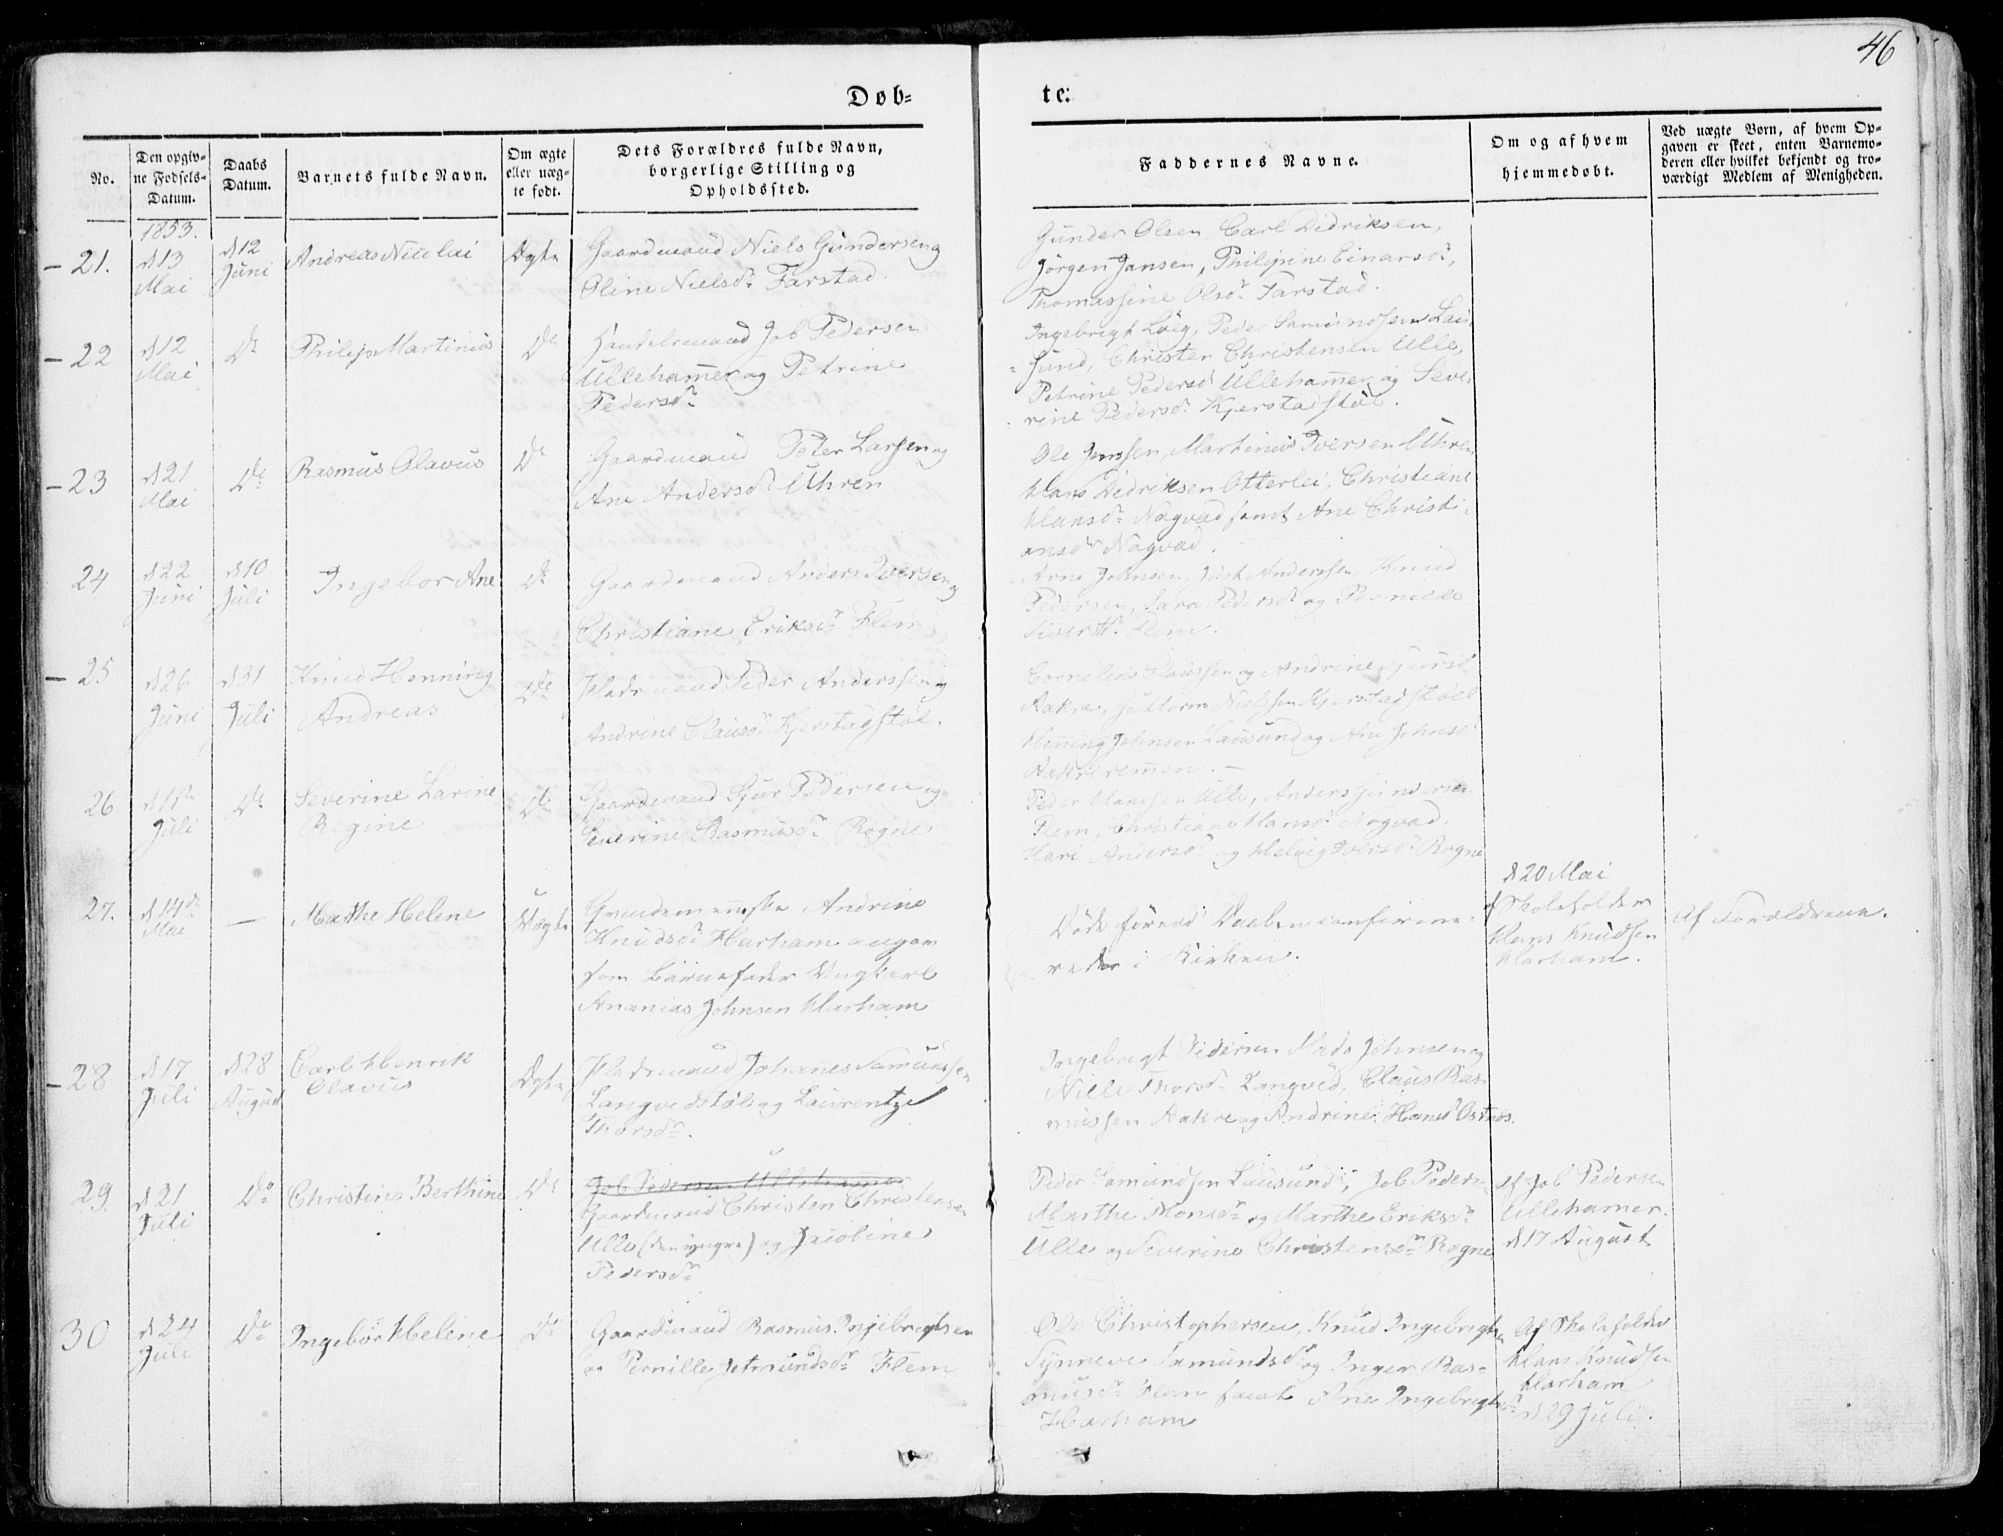 46
Døb=
te:
No.
Den opgiv=
ne Fødsels=
Datum.
Daabs
Datum.
Barnets fulde Navn.
Om ægte
eller uæg=
te født.
Dets Forældres fulde Navn,
borgerlige Stilling og
Opholdssted.
Faddernes Navne.
Om og af hvem
hjemmedøbt.
Ved uægte Børn, af hvem Op=
gaven er skeet, enten Barnemo=
deren eller hvilket bekjendt og tro=
værdigt Medlem af Menigheden.
1853.
21.
d 13
Mai
d 12
Juni
Andreas Nicolai
Ægte
Gaardmand Niels Gundersen og
Oline Nielsdr Farstad.
Gunder Olsen, Carl Didriksen,
Jørgen Jansen, Philipine Einarsdr,
Thomassine Olsdr Farstad.
22
d 12
Mai
Do
Philip Martinus
Do
Handelsmand Job Pedersen
Ullehammer og Petrine
Pedersdr
Ingebregt Løeg, Peder Samundsen Lau
=sund, Christen Christensen Ulle,
Petrine Pedersd Ullehammer og Seve=
rine Pedersdr Kjerstadstøl.
23
d 21
Mai
Do
Rasmus Olavus
Do
Gaardmand Peter Larsen og
Ane Andersdr Uhren
Ole Jenssen, Martinus Iversen Uhren
Hans Didriksen Otterlei, Christiane
Hansdr Nogvad samt Ane Christi=
ansdr Nogvad.
24
d 22
Juni
d 10
Juli
Ingebor Ane
Do
Gaardmand Anders Iversen og
Christiane Eriksdr Flem
Arne Johnsen, Just Anderssen, Knud
Pedersen, Sara Pedersdr og Pernille
Siversdr Flem.
25
d 26
Juni
d 31
Juli
Knud Henning
Andreas
Do
Pladsmand Peder Anderssen og
Andrine Clausdr Kjerstadstøl.
Cornelius Claussen og Andrine
Aakre, Guttorm Nielssen Kjerstadstøl
Henning Johnsen Lausund og Ane Johnsd
Aakreremmen.
26
Juli
Do
Severine Larine
Regine
Do
Gaardmand Sjur Pedersen og
Severine Rasmusdr Rogne
Peder Hanssen Ulle, Anders Gundersen
Flem, Christiane Hansdr Nogvad,
Kari Andersdr og Helvig Iversdr Rogne
27.
d 14de
Mai
—
Marthe Helene
Uægte
Knudsdr Harham angav
som Barnefader Ungkarl
Ananias Johnsen Harham
Døde førend Daaben confirme=
redes i Kirken.
d 20 Mai
af Skoleholder
Hans Knudsen
Harham.
Af Forældrene.
28
d 17
Juli
d 28
August
Carl Henrik
Olavus
Ægte
Pladsmand Johannes Samundsen
Langvedstøl og Laurentze
Thorsdr.
Ingebregt Pedersen Mads Johnsen og
Nille Thorsdr Langved, Claus Ras=
mussen Aakre og Andrine Hansd Ostnæs.
29.
d 21
Juli
Do
Christine Berthine
Do
Job Pedersen Ullehammer
Gaardmand Christen Christensen
Ulle (den yngre) og Jacobine
Pedersdr
Peder Samundsen Lausund, Job Peders
Marthe Monsdr og Marthe Eriksdr
Ulle og Severine Christensdr Rogne
af Job Pedersen
Ullehamer.
d 17 August
30
d 24
Juli
Do
Ingebor Helene
Do
Gaardmand Rasmus Ingebregtsen
og Pernille Jetmundsdr Flem
Ole Christophersen, Knud Ingebregtsen
Synneve Samundsdr og Inger Ras=
musdr Flem samt Ane Ingebregtsdr
Harham
Af Skoleholder
Hans Knudsen
Harham
d 29 Juli.